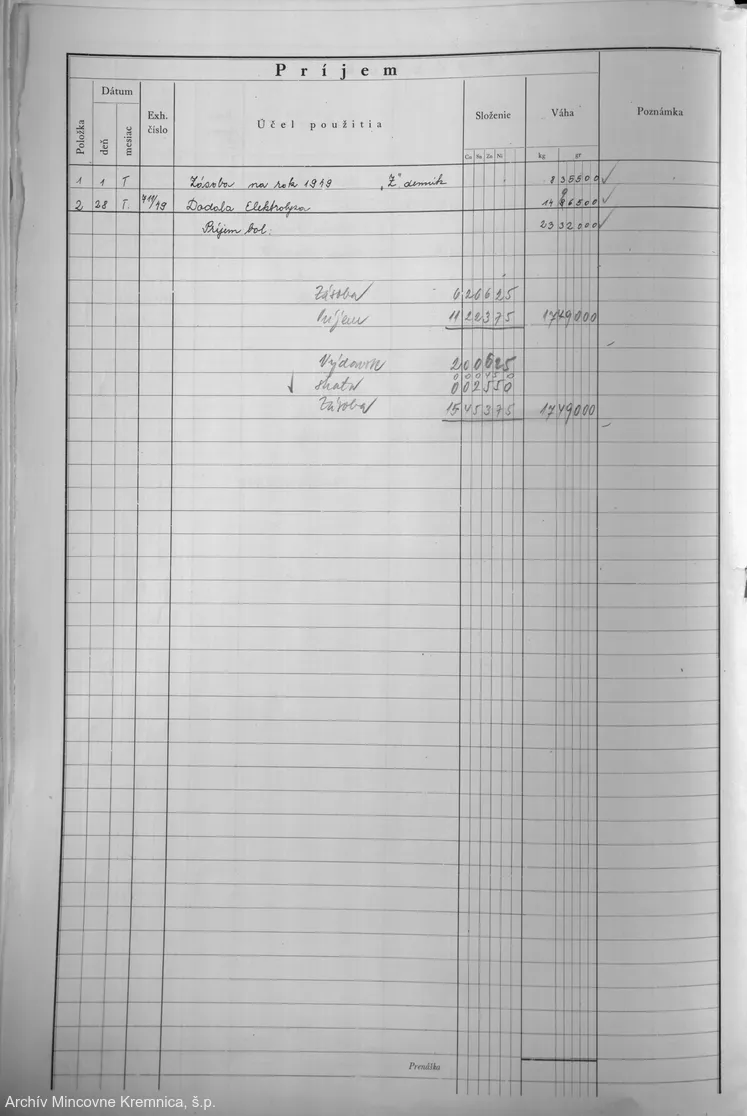 Príjem
Položka
Dátum
deň
mesiac
Exh. číslo
Účel použitia
Složenie
Cu Sn Zn Ni
Váha
kg gr
Poznámka
1 1 I. Zásoba na rok 1949 „Ž" denník 8 35500
2 28 I. 711/49 Dodala Elektrolýza 14 96500
Príjem bol: 23 32000
Zásoba 620625
Príjem 1122375 1749000
Výdavok 200625
↓ 002550
Zásoba 1545375 1749000
Prenáška
Archív Mincovne Kremnica, š.p.